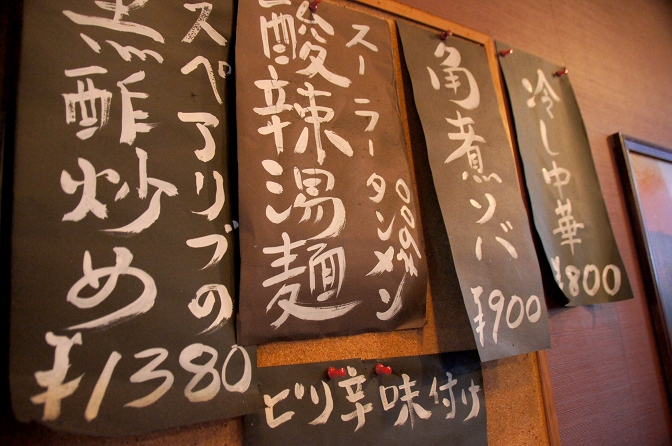 冷し中華
¥800
角煮ソバ
¥900
スーラータンメン
酸辣湯麺
¥900
スペアリブの
黒酢炒め
¥1380
ピリ辛味付け